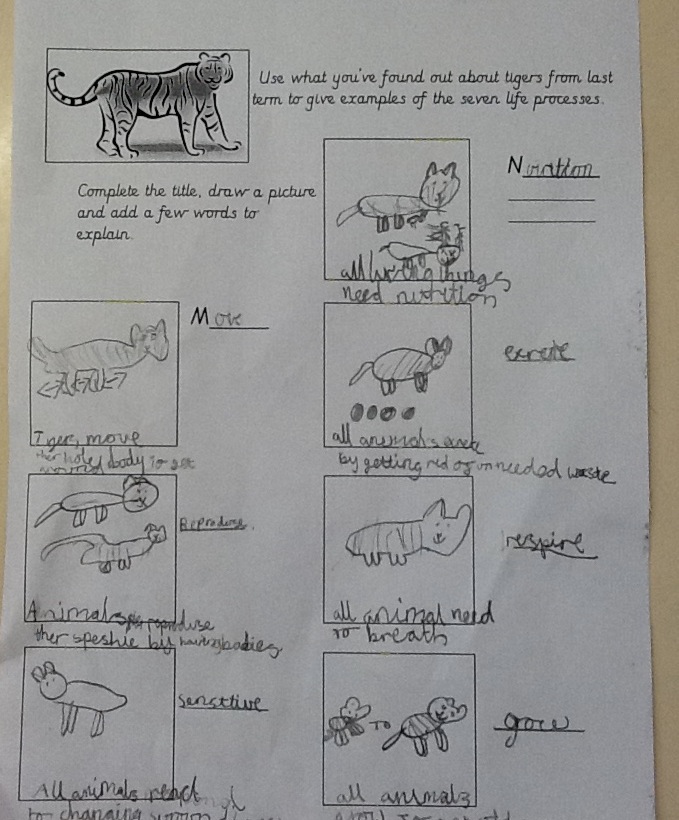 Use what you've found out about tigers from last
term to give examples of the seven life processes.
Complete the title, draw a picture
and add a few words to
explain.
Nutrition
all living things
need nutrition
Move
Tigers move
ther hole body to get
around
excrete
all animals
by getting rid of unneeded waste
Reproduce.
Animals reproduce
ther speshie by having babies
respire
all animal need
to breath
sensitive
All animals react
to changing
grow
TO
all animals